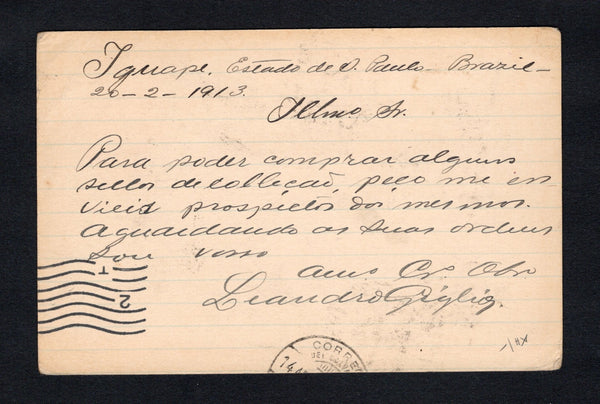 Iguape, Estado de S. Paulo – Brazil –
20 – 2 – 1913.
Illmo Sr.
Para poder comprar alguns
sellos de collecaõ, peço me en-
vieis prospectos dos mesmos.
Aguardando as suas ordens
Sou vosso
amo Cr. Obr
Leandro Giglio.
T
2
CORREI
14